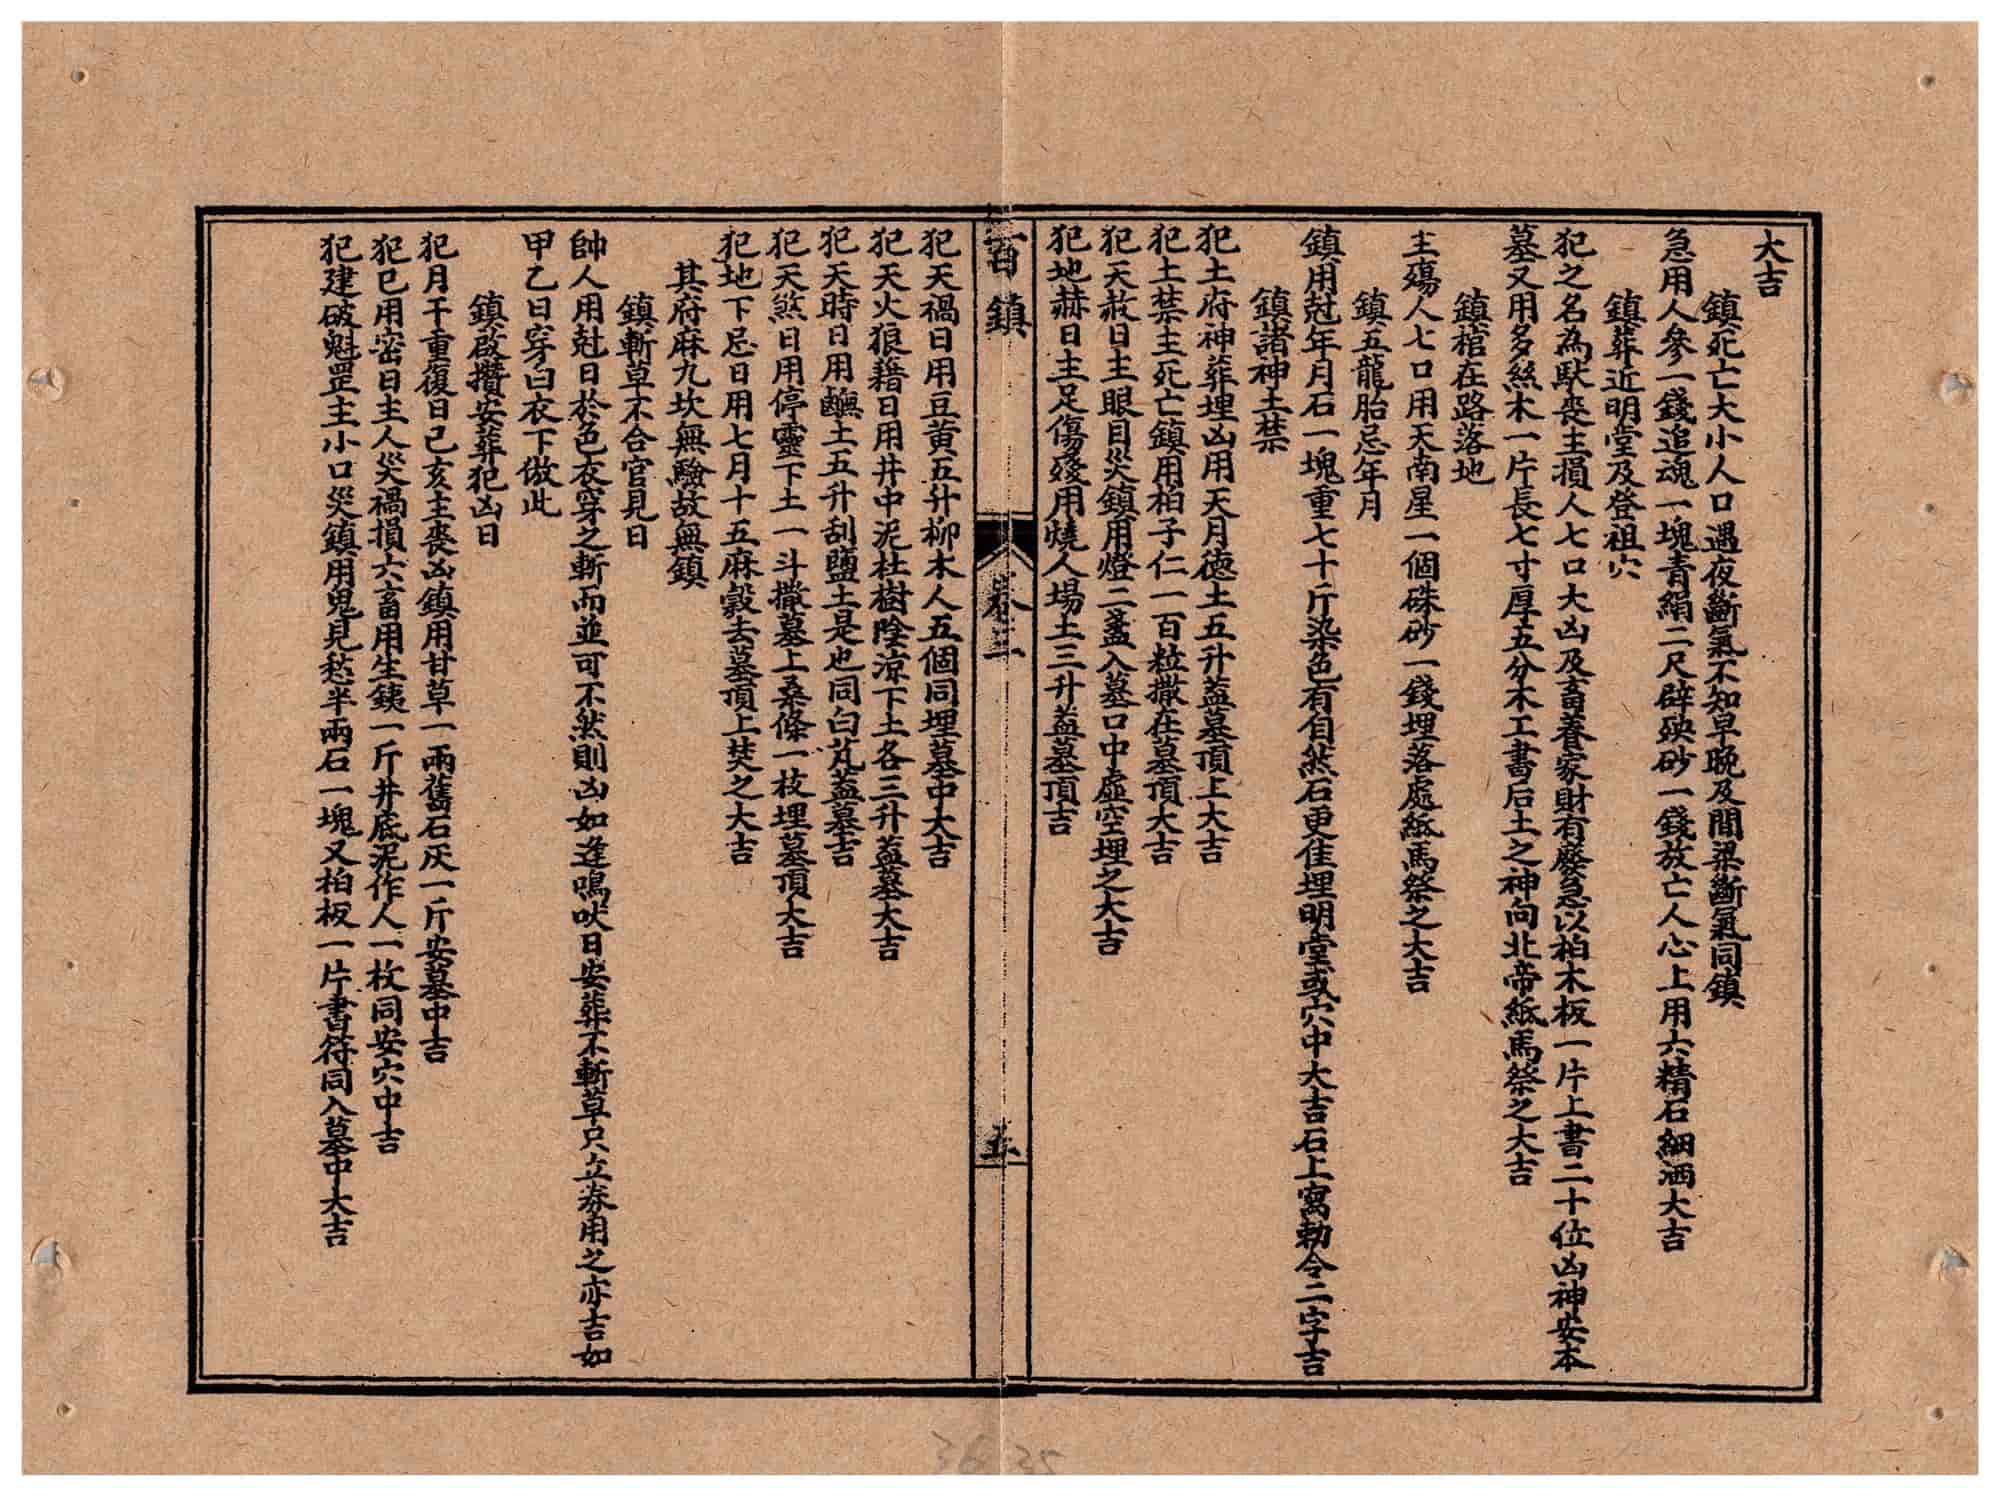 大吉
鎮死亡大小人口遇夜斷氣不知早晚及閻梁斷氣同鎮
急用人參一錢追魂一塊青絹二尺辟殃砂一錢放亡人心上用六精石細洒大吉
鎮葬近明堂及登祖穴
犯之名為馱喪主損人七口大凶及畜養家財有廢急以柏木板一片上書二十位凶神安本
墓又用多絲木一片長七寸厚五分木工書后土之神向北帝紙馬祭之大吉
鎮棺在路落地
主殤人七口用天南星一個硃砂一錢埋落處紙馬祭之大吉
鎮五龍胎忌年月
鎮用尅年月石一塊重七十斤染色有自然石更佳埋明堂或穴中大吉石上寫勅令二字吉
鎮諸神土禁
犯土府神葬埋凶用天月德土五升蓋墓頂上大吉
犯土禁主死亡鎮用柏子仁一百粒撒在墓頂大吉
犯天赦日主眼目災鎮用燈二盞入墓口中虛空埋之大吉
犯地赫日主足傷殘用燒人場土三升蓋墓頂吉
百鎮
卷三
五
犯天禍日用豆黃五升柳木人五個同埋墓中大吉
犯天火狼藉日用井中泥杜樹陰涼下土各三升蓋墓大吉
犯天時日用鹻土五升刮鹽土是也同白芃蓋墓吉
犯天煞日用停靈下土一斗撒墓上桑條一枝埋墓頂大吉
犯地下忌日用七月十五麻穀去墓頂上焚之大吉
其府麻九坎無驗故無鎮
鎮斬草不合官見日
帥人用尅日於色衣穿之斬而並可不然則凶如逢鳴吠日安葬不斬草只立券用之亦吉如
甲乙日穿白衣下倣此
鎮啟攢安葬犯凶日
犯月干重復日己亥主喪凶鎮用甘草一兩舊石灰一斤安墓中吉
犯已用密日主人災禍損六畜用生銕一斤井底泥作人一枚同安穴中吉
犯建破魁罡主小口災鎮用鬼見愁半兩石一塊又柏板一片書符同入墓中大吉
36 35